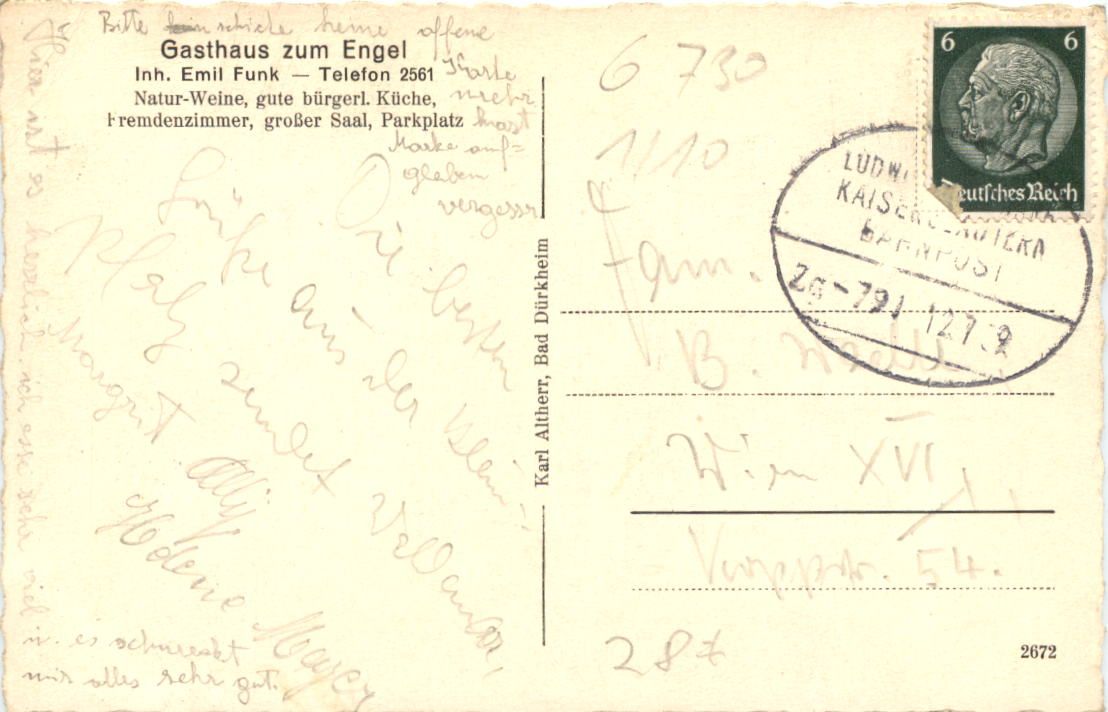 Bitte schicke keine offene
Karte
mehr
hast
Marke auf=
gleben
vergessn
Gasthaus zum Engel
Inh. Emil Funk — Telefon 2561
Natur-Weine, gute bürgerl. Küche,
Fremdenzimmer, großer Saal, Parkplatz
Die besten
Grüße aus der
Pfalz sendet
Margrit
Helene Mayer
Hier ist es herrlich ich esse sehr viel
u. es schmeckt
mir alles sehr gut.
Karl Altherr, Bad Dürkheim
6 730
1/10
6 6
Deutsches Reich
LUDW
KAISERSLAUTERN
BAHNPOST
Zg-791 12.7.39
Fam.
B.
Wien XVI
54.
28
2672